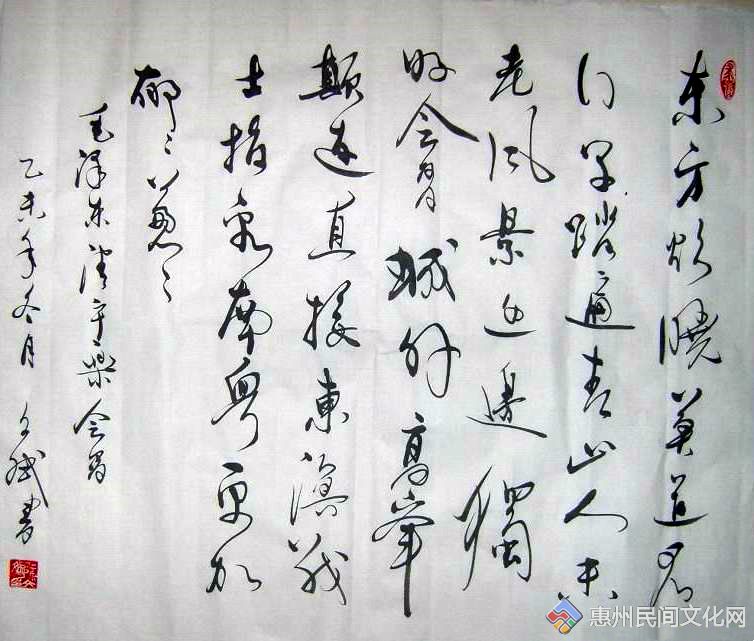 东方欲晓莫道君
行早踏遍青山人未
老风景这邊獨
好会昌城外高峯
颠连直接東溟战
士指看南粤更加
郁々葱々
毛泽东清平樂会昌
乙未年冬月 文斌书
惠州民间文化网